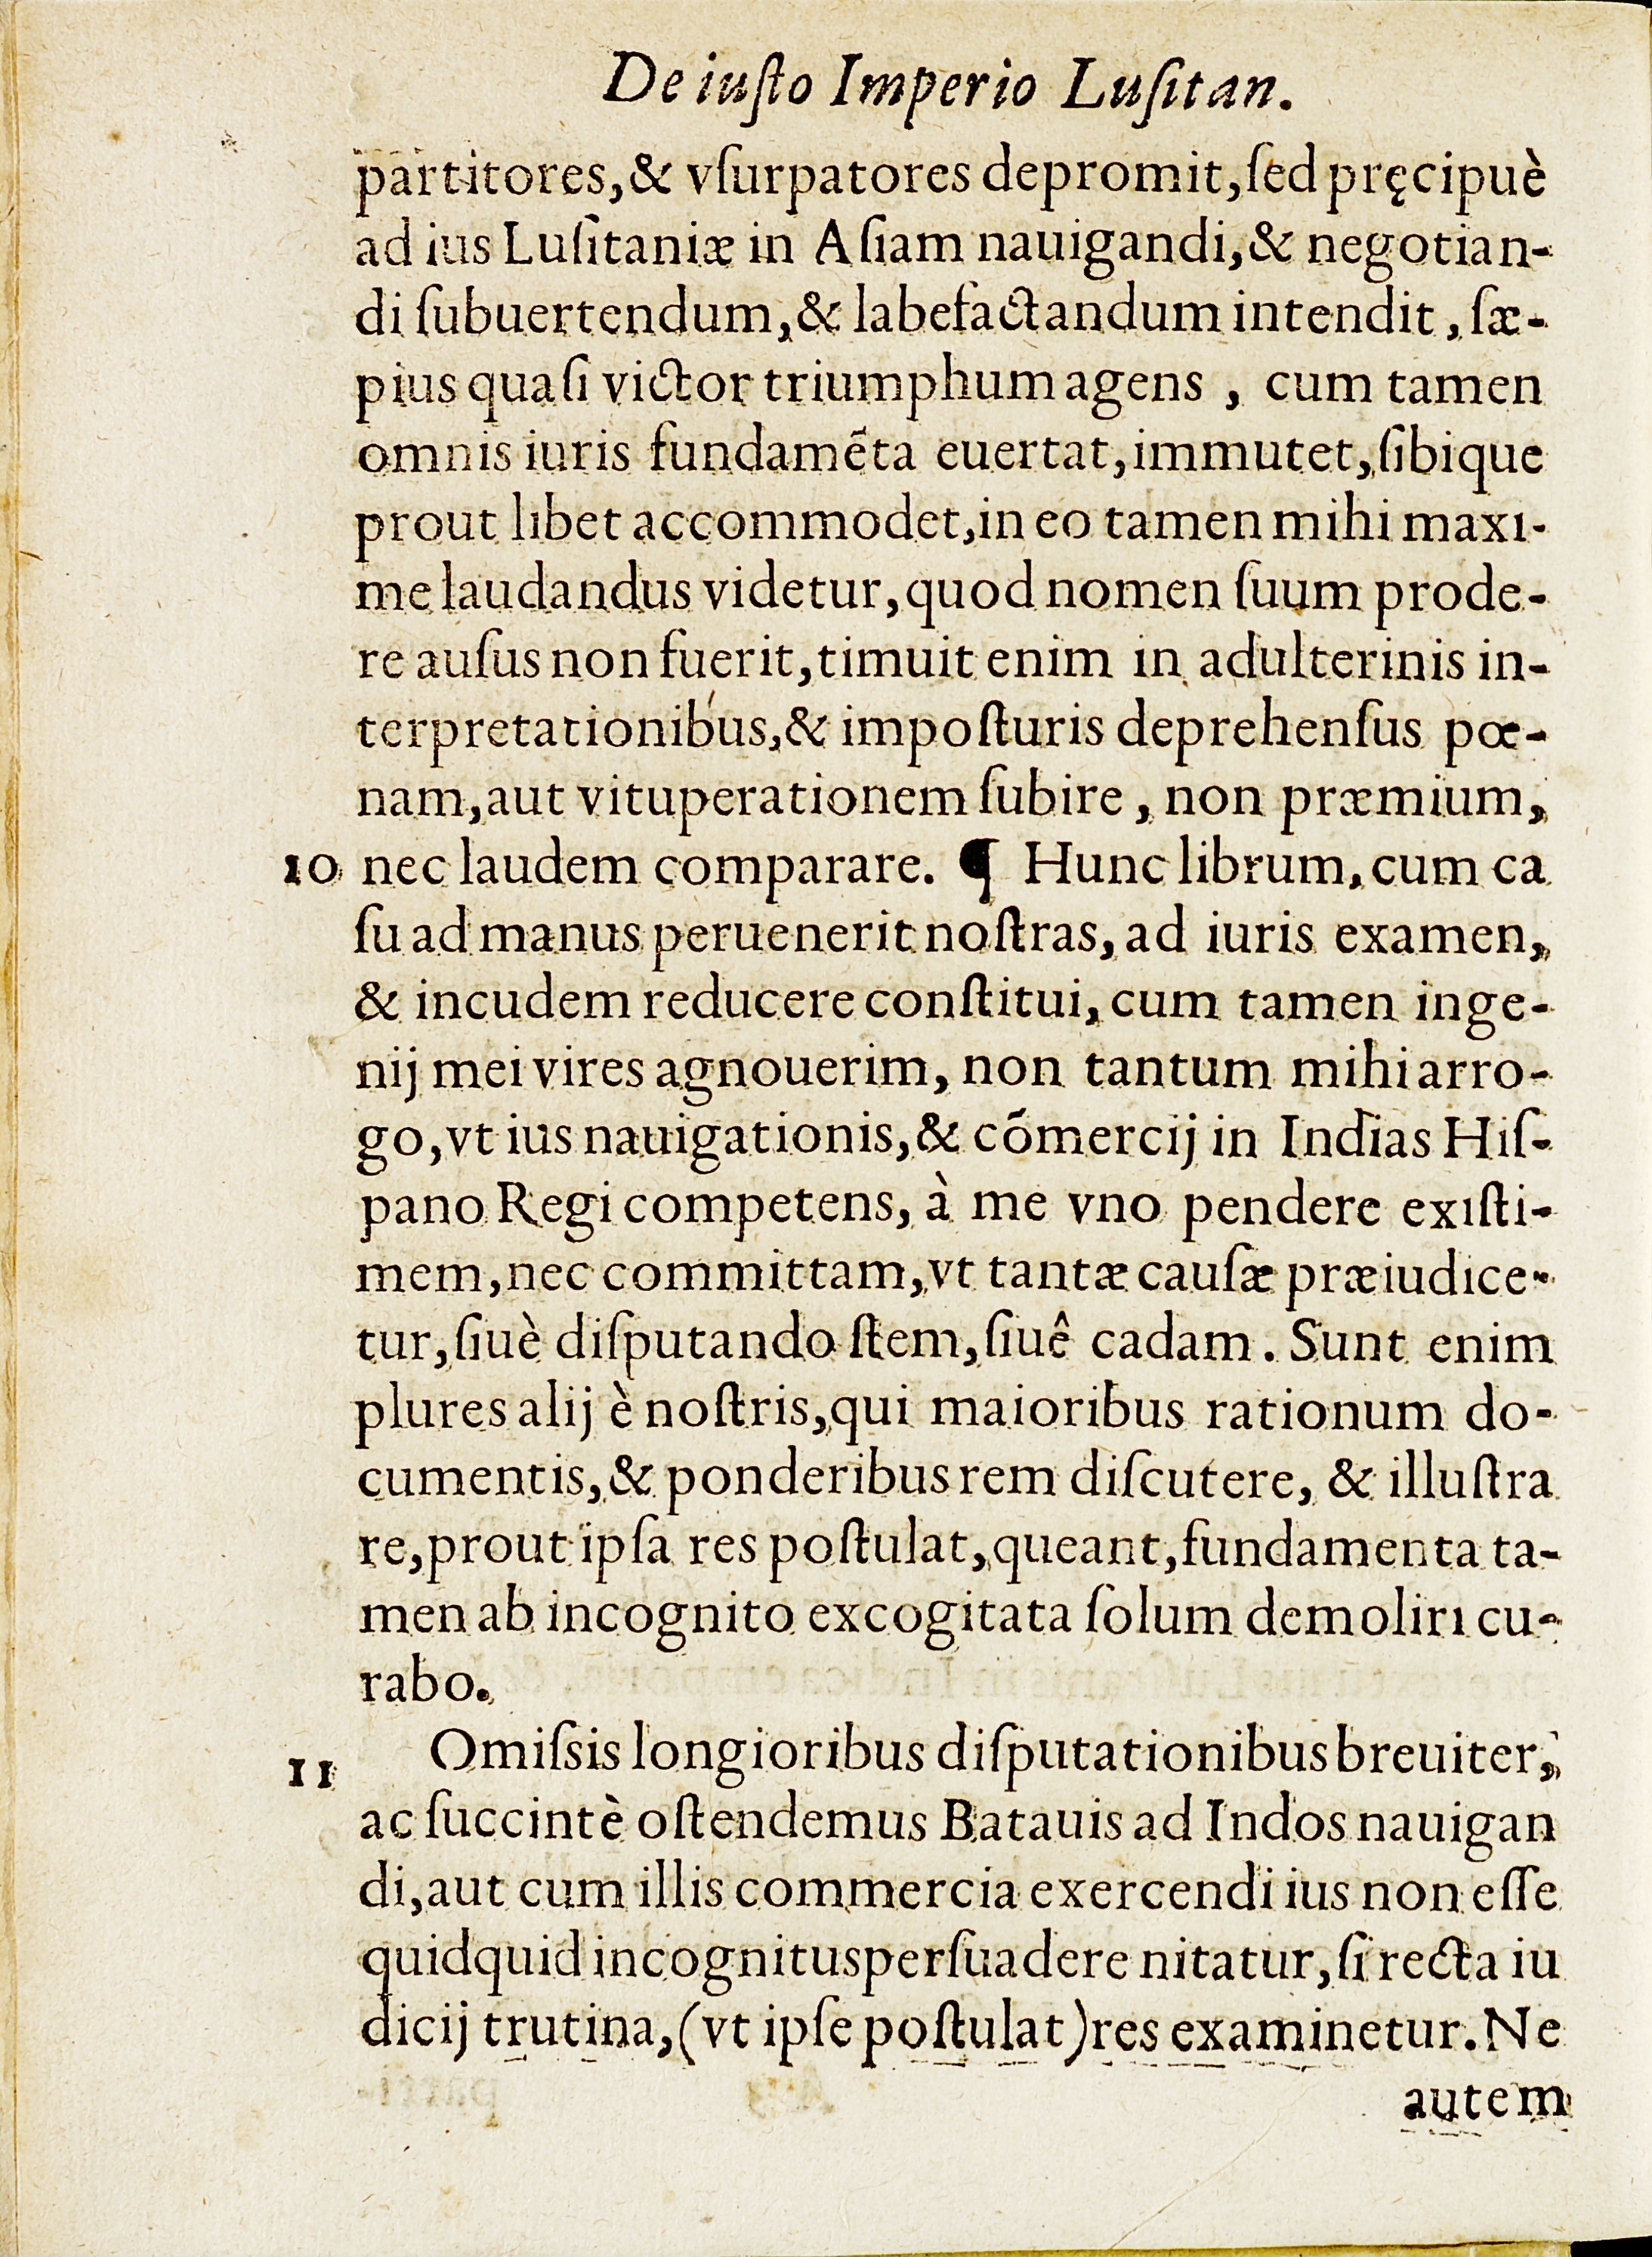 De iuſto Imperio Luſitan.
partitores,& vſurpatores depromit,ſed pręcipuè
ad ius Luſitaniæ in Aſiam nauigandi,& negotian-
di ſubuertendum,& labefactandum intendit, ſæ-
pius quaſi victor triumphum agens, cum tamen
omnis iuris fundamẽta euertat,immutet,ſibique
prout libet accommodet,in eo tamen mihi maxi-
me laudandus videtur,quod nomen ſuum prode-
re auſus non fuerit,timuit enim in adulterinis in-
terpretationibus,& impoſturis deprehenſus pœ-
nam,aut vituperationem ſubire, non præmium,
10 nec laudem comparare. ¶ Hunc librum,cum ca
ſu ad manus peruenerit noſtras, ad iuris examen,
& incudem reducere conſtitui, cum tamen inge-
nij mei vires agnouerim, non tantum mihi arro-
go,vt ius nauigationis,& cõmercij in Indias Hiſ-
pano Regi competens, à me vno pendere exiſti-
mem,nec committam,vt tantæ cauſæ præiudice-
tur,ſiuè diſputando ſtem,ſiuê cadam. Sunt enim
plures alij è noſtris,qui maioribus rationum do-
cumentis,& ponderibus rem diſcutere, & illuſtra
re,prout ipſa res poſtulat,queant,fundamenta ta-
men ab incognito excogitata ſolum demoliri cu-
rabo.
11 Omiſsis longioribus diſputationibus breuiter,
ac ſuccintè oſtendemus Batauis ad Indos nauigan
di,aut cum illis commercia exercendi ius non eſſe
quidquid incognitus perſuadere nitatur,ſi recta iu
dicij trutina,(vt ipſe poſtulat)res examinetur. Ne
autem